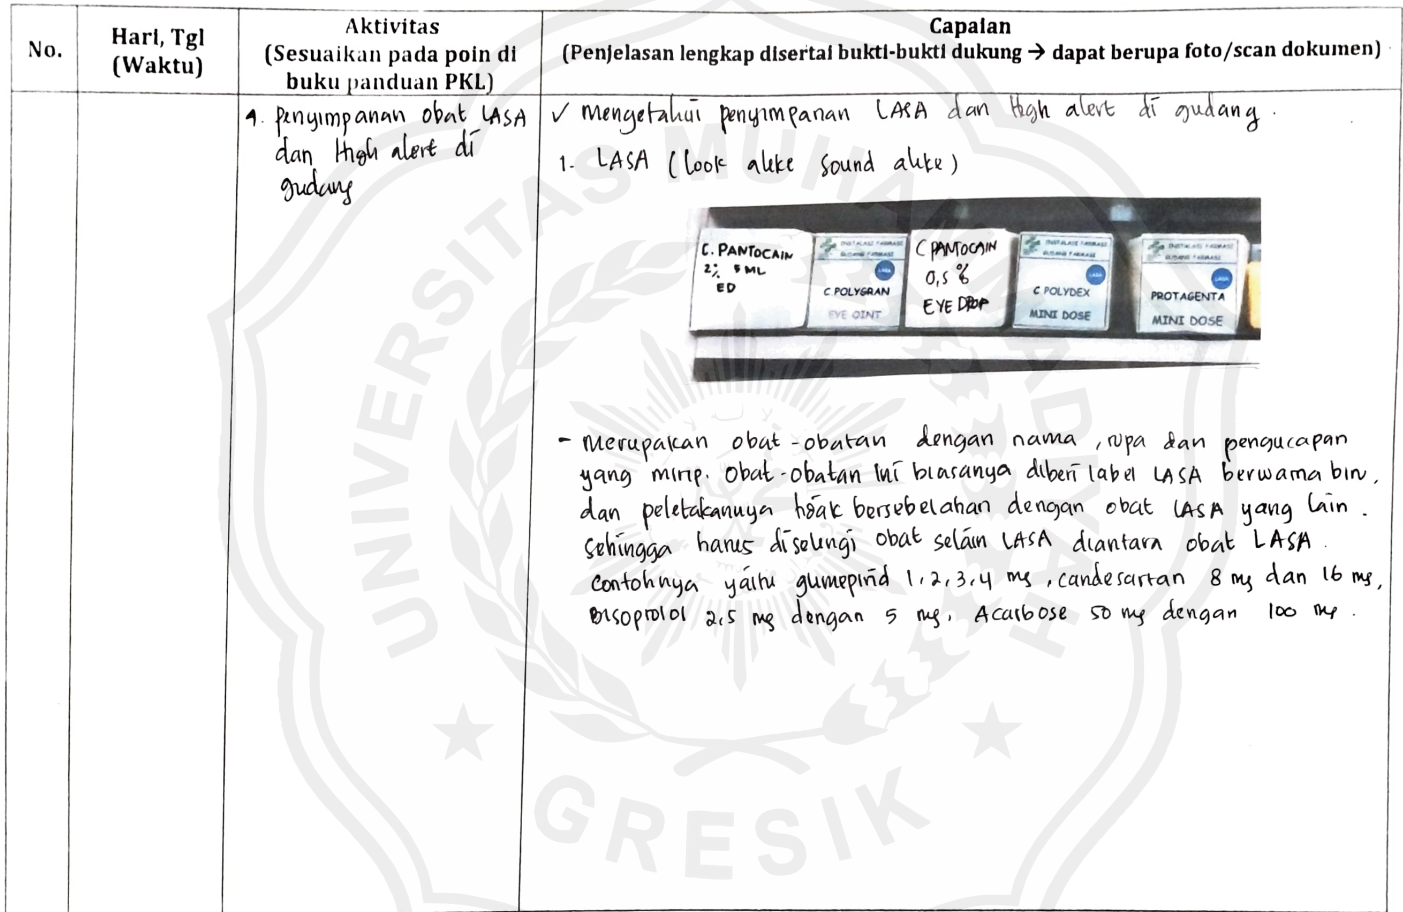 No.
Hari, Tgl
(Waktu)
Aktivitas
(Sesuaikan pada poin di
buku panduan PKL)
Capaian
(Penjelasan lengkap disertai bukti-bukti dukung → dapat berupa foto/scan dokumen)
9. Penyimpanan obat LASA
dan High alert di
gudang
✓ Mengetahui penyimpanan LASA dan High alert di gudang.
1. LASA (Look alike Sound alike)
C. PANTOCAIN
2% 5 ML
ED
INSTALASI FARMASI
GUDANG FARMASI
LASA
C POLYGRAN
EYE OINT
C PANTOCAIN
0,5 %
EYE DROP
INSTALASI FARMASI
GUDANG FARMASI
LASA
C POLYDEX
MINI DOSE
INSTALASI FARMASI
GUDANG FARMASI
LASA
PROTAGENTA
MINI DOSE
- Merupakan obat-obatan dengan nama, rupa dan pengucapan
yang mirip. Obat-obatan ini biasanya diberi label LASA berwarna biru,
dan peletakannya tidak bersebelahan dengan obat LASA yang lain.
Sehingga harus diselingi obat selain LASA diantara obat LASA.
Contohnya yaitu glimepirid 1,2,3,4 mg, candesartan 8 mg dan 16 mg,
Bisoprolol 2,5 mg dengan 5 mg, Acarbose 50 mg dengan 100 mg.
UNIVERSITAS MUHAMMADIYAH
GRESIK